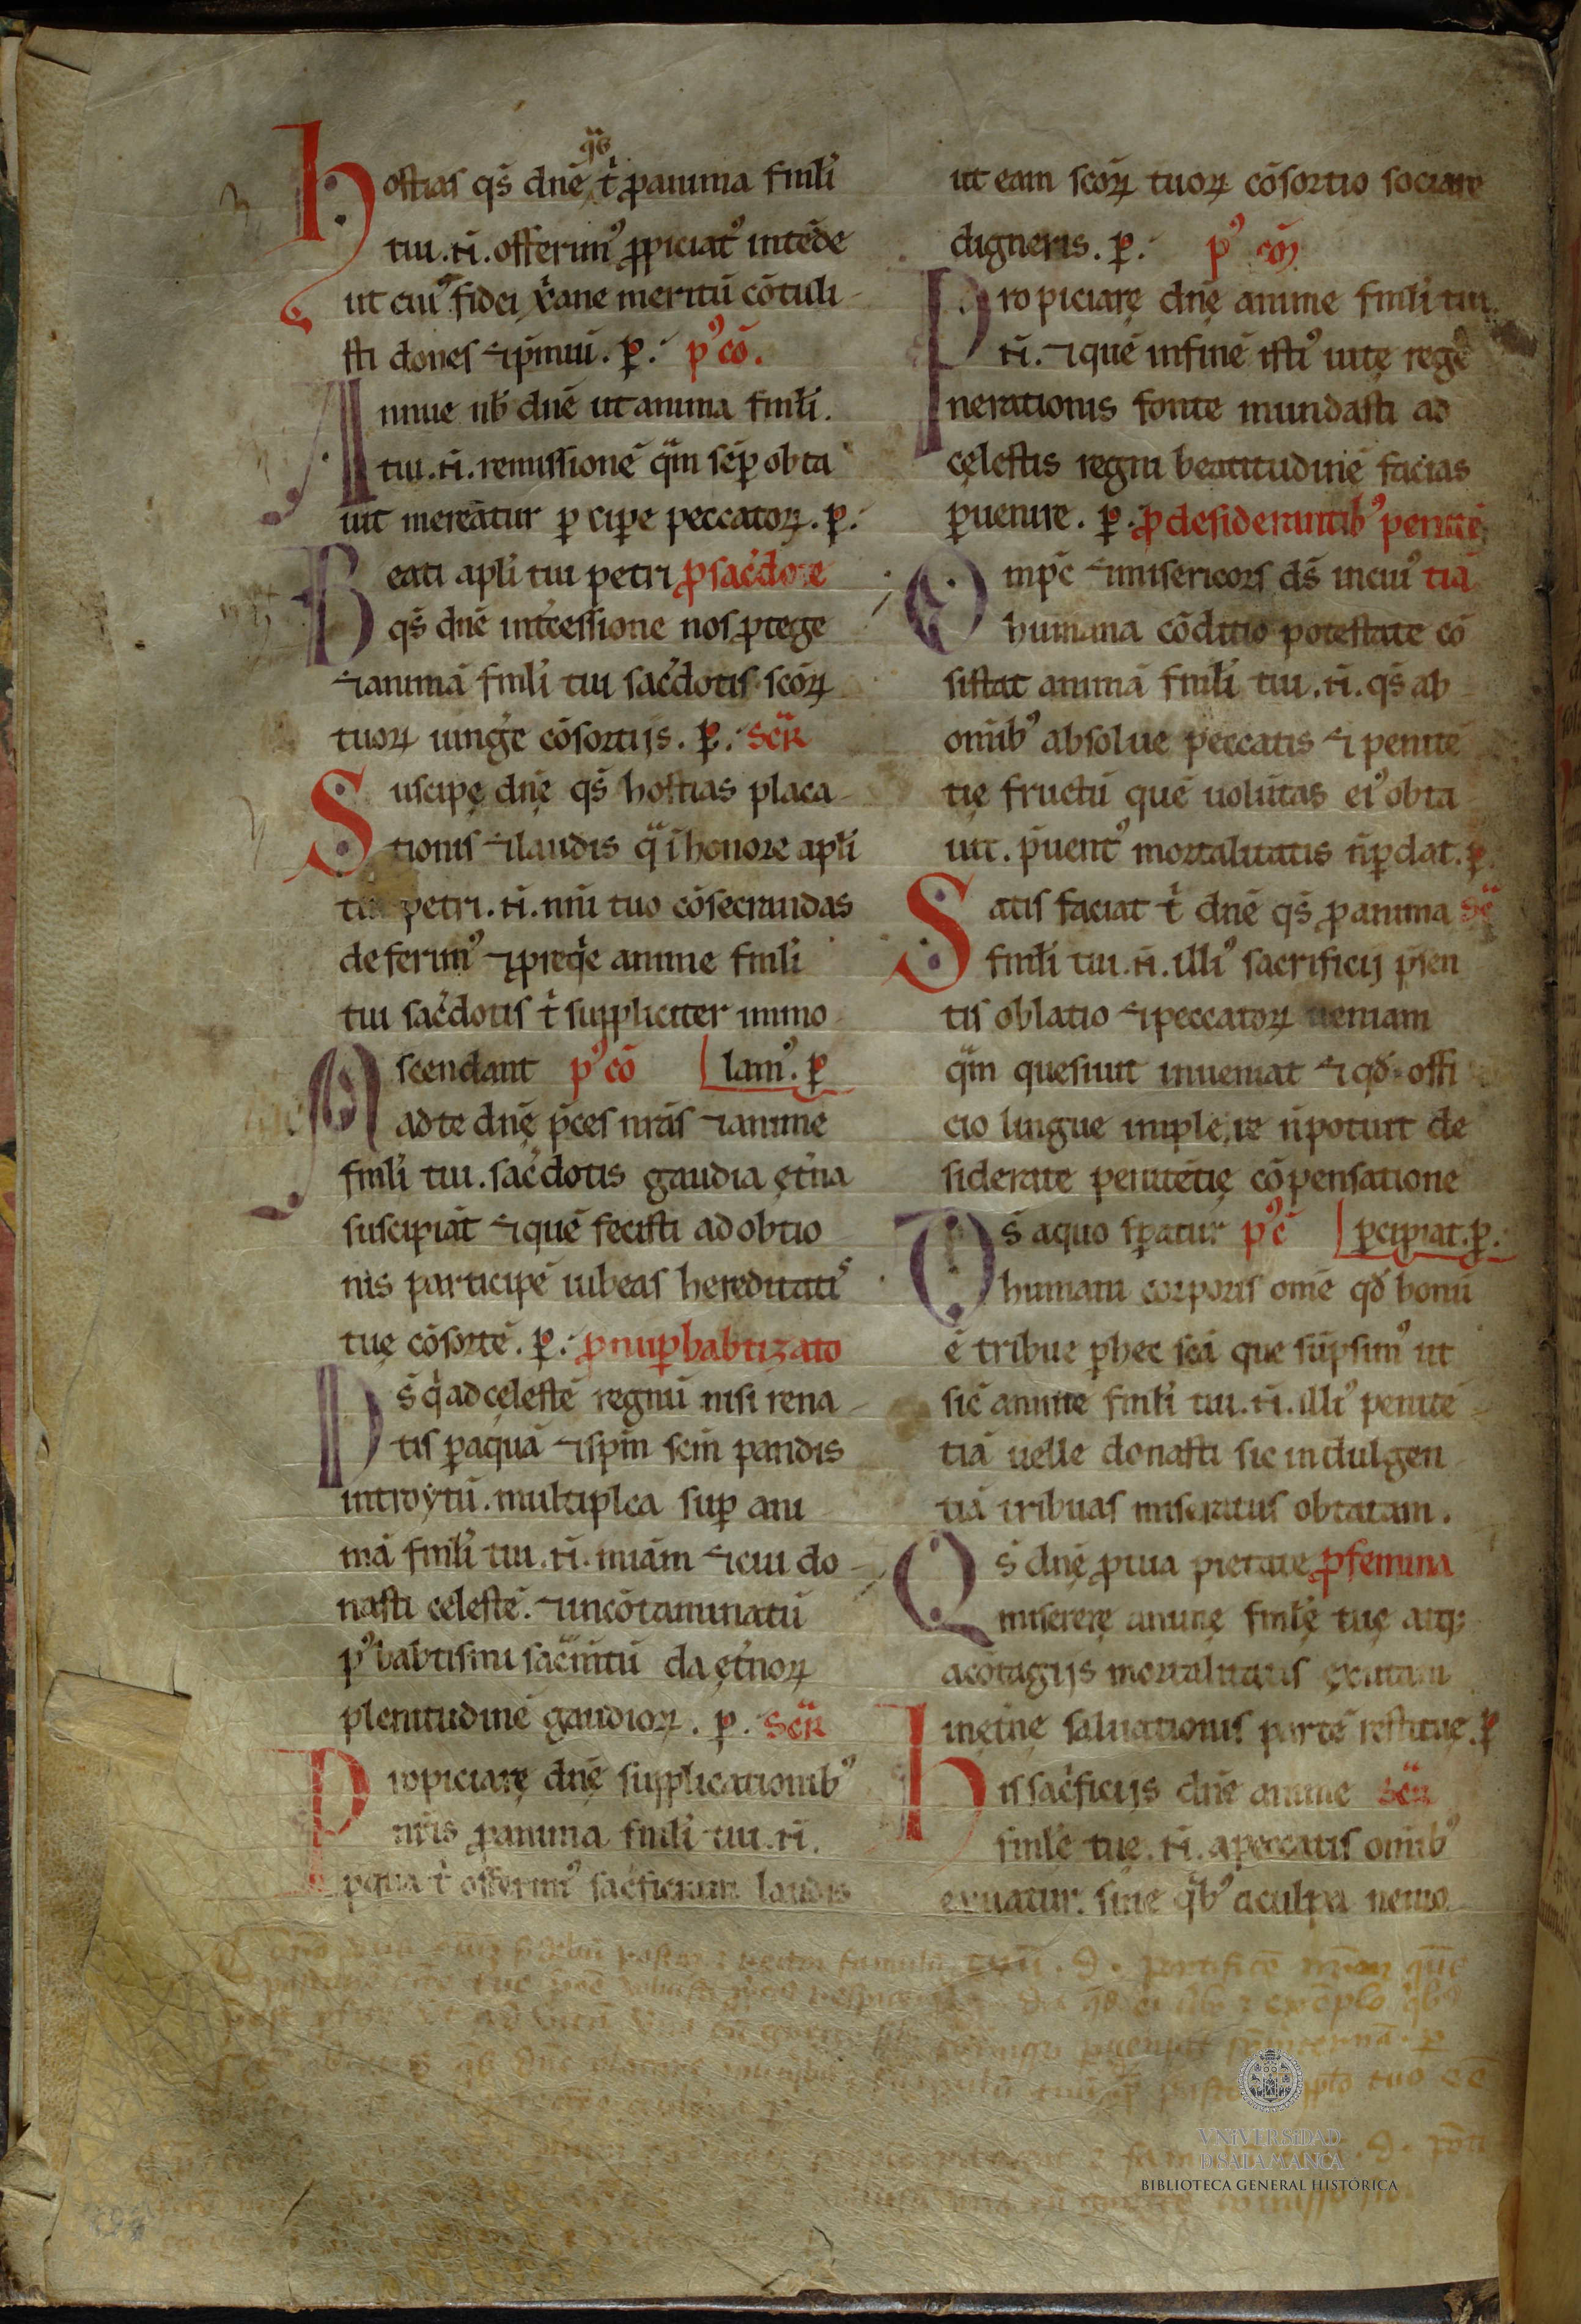 Hostias qs̄ dnē, qͣs t̾ ꝓ anima fml̄i
tui .N̄. offerimꝰ ꝓpiciatꝰ intēde
ut cuiꝰ fidei xp̄iane meritū cōtuli
sti dones ⁊ p̄miū. ꝑ. pꝰ cō.
Annue nb̄ dnē ut anima fml̄i
tui .N̄. remissionē qͣm sēꝑ obta
uit mereātur ꝑcipe peccatoꝝ. ꝑ.
Beati apl̄i tui petri ꝓ sac̄dote
qs̄ dnē int̄cessione nos ꝓtege
⁊ animā fml̄i tui sac̄dotis scōꝝ
tuoꝝ iunge cōsortijs. ꝑ. Scͬ
Suscipe dnę qs̄ hostias placa
tionis ⁊ laudis qͣs ī honore apl̄i
tui petri .N̄. nm̄i tuo cōsecrandas
deferimꝰ ⁊ ꝓ req̄e anime fml̄i
tui sac̄dotis t̾ suppliciter immo
Ascendant pꝰ cō lamꝰ. ꝑ
ad te dnę p̄ces nr̄as ⁊ anime
fml̄i tui sac̄dotis gaudia ęt̄na
suscipiāt ⁊ quē fecisti adobtio
nis participē iubeas hereditatiˢ
tuę cōsortē. ꝑ. ꝓ nuꝑ babtizato
Ds̄ q̾ ad cęlestē regnū nisi rena
tis ꝑ aquā ⁊ sp̄m scm̄ pandis
introytū. multiplica suꝑ ani
mā fml̄i tui .N̄. mīam ⁊ cui do
nasti celestē. ⁊ incōtaminatū
pꝰ babtismi sac̄mtū da ęt̄noꝝ
plenitudinē gaudioꝝ. ꝑ. Scͬ
Propiciarę dnę supplicationibꝰ
nr̄is ꝓ anima fml̄i tui .N̄.
ꝓ qua t̾ offerimꝰ sac̄ficium laudis
ut eam scōꝝ tuoꝝ cōsortio sociare
digneris. ꝑ. pꝰ cō
Propiciarę dnę anime fml̄i tui
.N̄. ⁊ quē in finē istiꝰ uitę regē
nerationis fonte mundasti ad
cęlestis regni beatitudinē facias
ꝑuenire. ꝑ. ꝓ desiderantibꝰ penitē
Omp̄c ⁊ misericors ds̄ in cuiꝰ tiā
humana cōditio potestate cō
sistat animā fml̄i tui .N̄. qs̄ ab
om̄ibꝰ absolue peccatis ⁊ penitē
tię fructū quē uolūtas eiꝰ obta
uit. p̄uentꝰ mortalitatis n̄ ꝑdat. ꝑ
Satis faciat t̾ dnē qs̄ ꝓ anima Sͨ
fml̄i tui .N̄. illiꝰ sacrificij p̄sen
tis oblatio ⁊ peccatoꝝ ueniam
qͣm quesiuit inueniat ⁊ qd̄ offi
cio lingue implere n̄ potuit de
siderate penitētię cōpensatione
Ds̄ a quo sꝑatur pꝰ c̄ ꝑcipiat. ꝑ.
humani corporis om̄e qd̄ bonū
ē tribue ꝑ hec scā que sūpsimꝰ ut
sic̄ anime fml̄i tui .N̄. illiꝰ penitē
tiā uelle donasti sic indulgen
tiā tribuas miseratus obtatam.
Qs̄ dnę ꝓ tua pietate ꝓ femina
miserere animę fml̄ę tuę atq;
a cōtagijs mortalitatis exutam
in ęt̄nę saluationis partē restitue. ꝑ
His sac̄ficijs dnē anime Scͬ
fml̄e tuę .N̄. a peccatis om̄ibꝰ
exuatur. sine qͥbꝰ a culpa nemo
VNiVERSiDAD
D SALAMANCA
BIBLIOTECA GENERAL HISTÓRICA